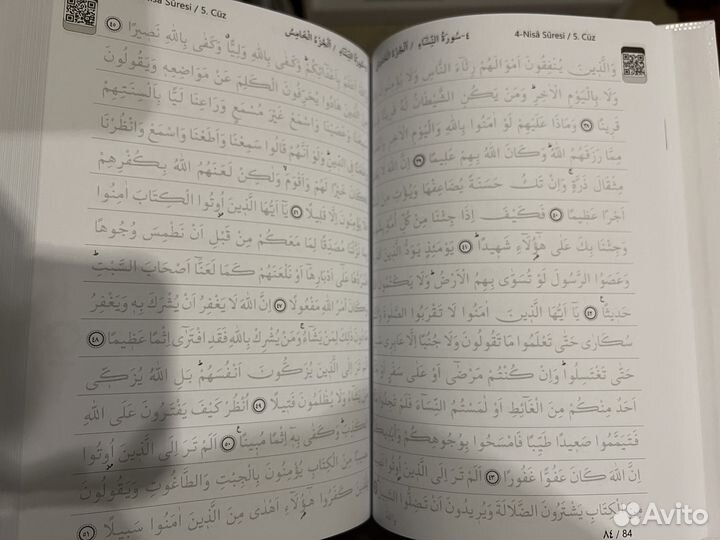 4-Nisâ Sûresi / 5. Cüz
٤-سُورَةُ النِّسَاءِ / اَلْجُزْءُ الْخَامِسُ
وَالَّذِينَ يُنْفِقُونَ اَمْوَالَهُمْ رِئَاءَ النَّاسِ وَلَا يُؤْمِنُونَ
وَلَا بِالْيَوْمِ الْاٰخِرِ وَمَنْ يَكُنِ الشَّيْطَانُ لَهُ
قَرِينًا ﴿٣٨﴾ وَمَاذَا عَلَيْهِمْ لَوْ اٰمَنُوا بِاللّٰهِ وَالْيَوْمِ الْاٰخِرِ
مِمَّا رَزَقَهُمُ اللّٰهُ وَكَانَ اللّٰهُ بِهِمْ عَلِيمًا ﴿٣٩﴾ اِنَّ اللّٰهَ لَا
مِثْقَالَ ذَرَّةٍ وَاِنْ تَكُ حَسَنَةً يُضَاعِفْهَا وَيُؤْتِ مِنْ
اَجْرًا عَظِيمًا ﴿٤٠﴾ فَكَيْفَ اِذَا جِئْنَا مِنْ كُلِّ اُمَّةٍ
وَجِئْنَا بِكَ عَلٰى هٰٓؤُلَاءِ شَهِيدًا ﴿٤١﴾ يَوْمَئِذٍ يَوَدُّ الَّذِينَ
وَعَصَوُا الرَّسُولَ لَوْ تُسَوّٰى بِهِمُ الْاَرْضُ وَلَا يَكْتُمُونَ
حَدِيثًا ﴿٤٢﴾ يَا اَيُّهَا الَّذِينَ اٰمَنُوا لَا تَقْرَبُوا الصَّلٰوةَ
سُكَارٰى حَتّٰى تَعْلَمُوا مَا تَقُولُونَ وَلَا جُنُبًا اِلَّا عَابِرِي
حَتّٰى تَغْتَسِلُوا وَاِنْ كُنْتُمْ مَرْضٰٓى اَوْ عَلٰى سَفَرٍ اَوْ
اَحَدٌ مِنْكُمْ مِنَ الْغَائِطِ اَوْ لٰمَسْتُمُ النِّسَاءَ فَلَمْ تَجِدُوا
فَتَيَمَّمُوا صَعِيدًا طَيِّبًا فَامْسَحُوا بِوُجُوهِكُمْ وَاَيْدِيكُمْ
اِنَّ اللّٰهَ كَانَ عَفُوًّا غَفُورًا ﴿٤٣﴾ اَلَمْ تَرَ اِلَى الَّذِينَ اُوتُوا
الْكِتَابِ يَشْتَرُونَ الضَّلَالَةَ وَيُرِيدُونَ اَنْ تَضِلُّوا
٨٤ / 84
Nisâ Sûresi / 5. Cüz
سُورَةُ النِّسَاءِ / اَلْجُزْءُ الْخَامِسُ
اَعْلَمُ بِاَعْدَائِكُمْ وَكَفٰى بِاللّٰهِ وَلِيًّا وَكَفٰى بِاللّٰهِ نَصِيرًا ﴿٤٥﴾
الَّذِينَ هَادُوا يُحَرِّفُونَ الْكَلِمَ عَنْ مَوَاضِعِهِ وَيَقُولُونَ
سَمِعْنَا وَعَصَيْنَا وَاسْمَعْ غَيْرَ مُسْمَعٍ وَرَاعِنَا لَيًّا بِاَلْسِنَتِهِمْ
فِي الدِّينِ وَلَوْ اَنَّهُمْ قَالُوا سَمِعْنَا وَاَطَعْنَا وَاسْمَعْ وَانْظُرْنَا
لَكَانَ خَيْرًا لَهُمْ وَاَقْوَمَ وَلٰكِنْ لَعَنَهُمُ اللّٰهُ بِكُفْرِهِمْ
يُؤْمِنُونَ اِلَّا قَلِيلًا ﴿٤٦﴾ يَا اَيُّهَا الَّذِينَ اُوتُوا الْكِتَابَ اٰمِنُوا
نَزَّلْنَا مُصَدِّقًا لِمَا مَعَكُمْ مِنْ قَبْلِ اَنْ نَطْمِسَ وُجُوهًا
فَنَرُدَّهَا عَلٰى اَدْبَارِهَا اَوْ نَلْعَنَهُمْ كَمَا لَعَنَّا اَصْحَابَ السَّبْتِ
وَكَانَ اَمْرُ اللّٰهِ مَفْعُولًا ﴿٤٧﴾ اِنَّ اللّٰهَ لَا يَغْفِرُ اَنْ يُشْرَكَ بِهِ وَيَغْفِرُ
دُونَ ذٰلِكَ لِمَنْ يَشَاءُ وَمَنْ يُشْرِكْ بِاللّٰهِ فَقَدِ افْتَرٰٓى اِثْمًا عَظِيمًا ﴿٤٨﴾
تَرَ اِلَى الَّذِينَ يُزَكُّونَ اَنْفُسَهُمْ بَلِ اللّٰهُ يُزَكِّي
وَلَا يُظْلَمُونَ فَتِيلًا ﴿٤٩﴾ اُنْظُرْ كَيْفَ يَفْتَرُونَ عَلَى اللّٰهِ
الْكَذِبَ وَكَفٰى بِهِ اِثْمًا مُبِينًا ﴿٥٠﴾ اَلَمْ تَرَ اِلَى الَّذِينَ اُوتُوا
مِنَ الْكِتَابِ يُؤْمِنُونَ بِالْجِبْتِ وَالطَّاغُوتِ وَيَقُولُونَ
كَفَرُوا هٰٓؤُلَاءِ اَهْدٰى مِنَ الَّذِينَ اٰمَنُوا سَبِيلًا ﴿٥١﴾
Avito